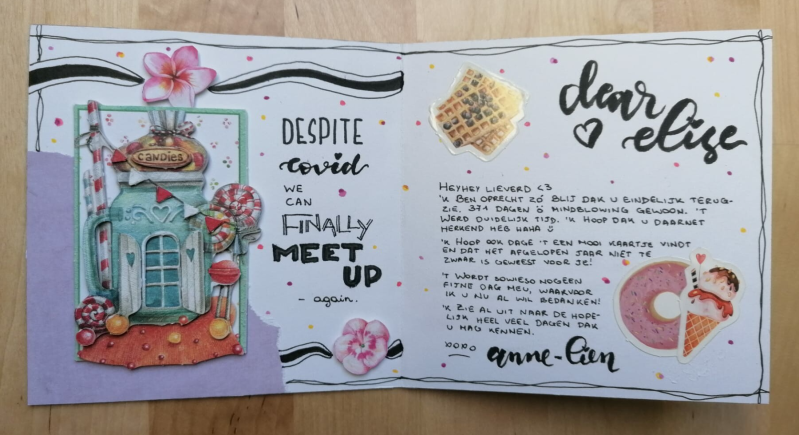 CANDIES
DESPITE
covid
WE
CAN
FINALLY
MEET
UP
- again.
dear
elise
HEYHEY LIEVERD <3
'K BEN OPRECHT ZÓ BLIJ DAK U EINDELIJK TERUG-
ZIE. 371 DAGEN Ö MINDBLOWING GEWOON. 'T
WERD DUIDELIJK TIJD. 'K HOOP DAK U DAARNET
HERKEND HEB HAHA Ü
'K HOOP OOK DAGE 'T EEN MOOI KAARTJE VINDT
EN DAT HET AFGELOPEN JAAR NIET TE
ZWAAR IS GEWEEST VOOR JE!
'T WORDT SOWIESO NOG EEN
FIJNE DAG MEU, WAARVOOR
IK U NU AL WIL BEDANKEN!
'K ZIE AL UIT NAAR DE HOPE-
LIJK HEEL VEEL DAGEN DAK
U MAG KENNEN.
XOXO
anne-lien